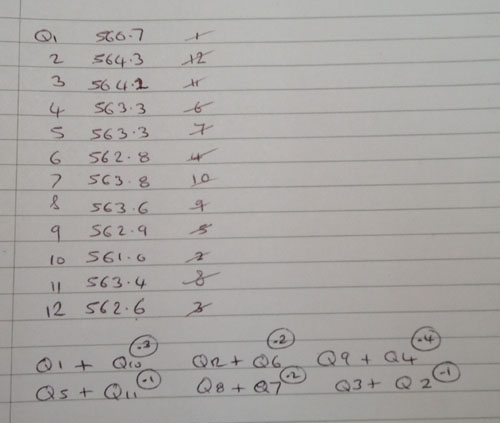 Q1 560.7 1
2 564.3 12
3 564.2 11
4 563.3 6
5 563.3 7
6 562.8 4
7 563.8 10
8 563.6 9
9 562.9 5
10 561.6 2
11 563.4 8
12 562.6 3
Q1 + Q10 .3 Q12 + Q6 .2 Q9 + Q4 .4
Q5 + Q11 .1 Q8 + Q7 .2 Q3 + Q2 .1